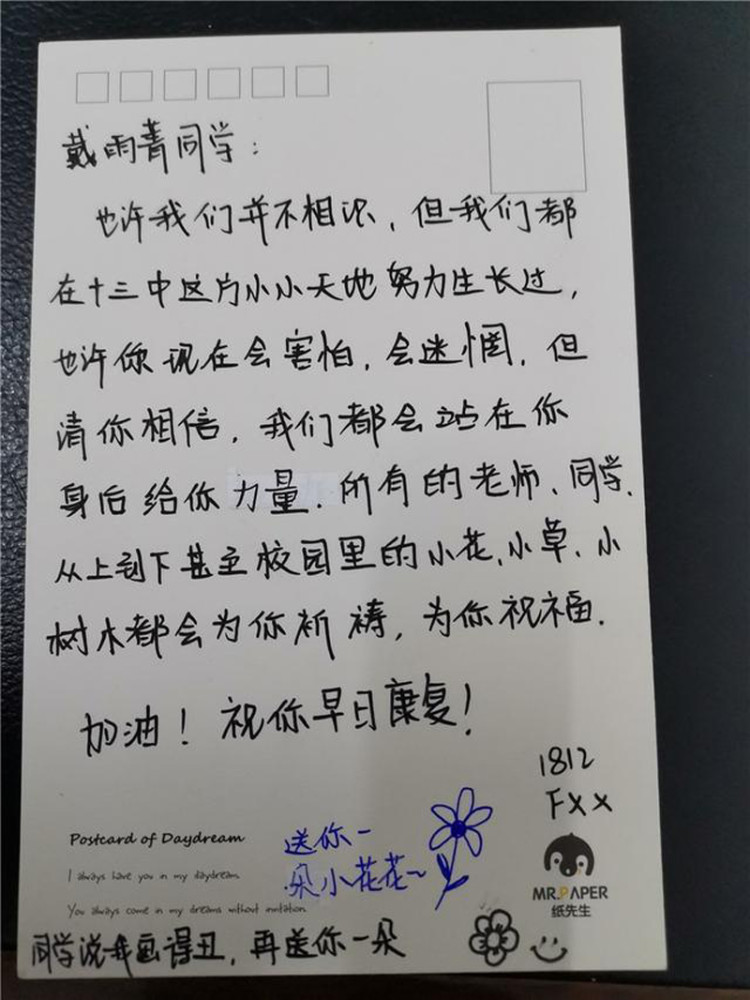 戴雨菁同学：
也许我们并不相识，但我们都
在十三中这片小小天地努力生长过，
也许你现在会害怕，会迷惘，但
请你相信，我们都会站在你
身后给你力量.所有的老师、同学、
从上到下甚至校园里的小花、小草、小
树木都会为你祈祷，为你祝福.
加油！祝你早日康复！
1812
FXX
Postcard of Daydream
I always have you in my daydream.
You always come in my dreams without invitation.
送你一
朵小花花~
MR.PAPER
纸先生
同学说我画得丑，再送你一朵